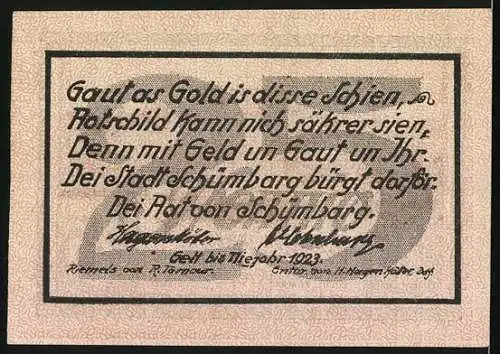 Gaut as Gold is disse Schien,
Rotschild kann nich säkrer sien,
Denn mit Geld un Gaut un Ihr.
Dei Stadt Schümbarg bürgt dorför.
Dei Rat von Schümbarg.
Gelt bis Niejahr 1923.
Riemels von P. Tornour.
Entw. von H. Hagen
25